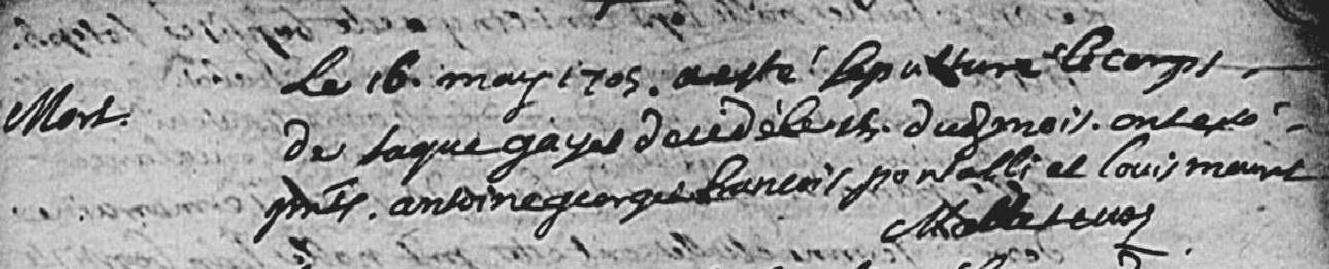 Mort.
Le 16. may 1705. a esté sepulturé le corps
de Jaque gayet decedé le 15. dud mois. ont esté
pnts. antoine george francois portalli et Louis meunt